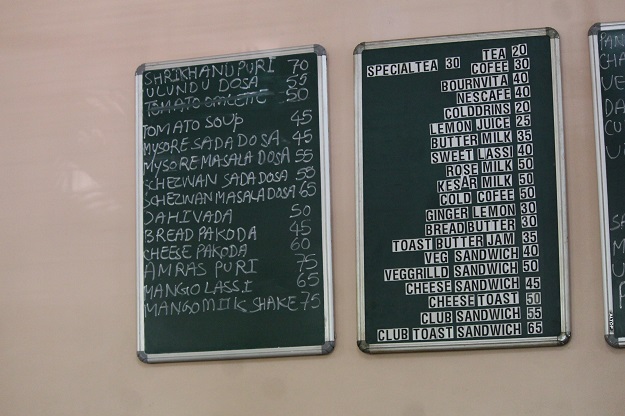 SHRIKHANUPURI 70
ULUNDU DOSA 55
TOMATO OMLETTE 50
TOMATO SOUP 45
MYSORE SADA DOSA 45
MYSORE MASALA DOSA 55
SCHEZWAN SADA DOSA 55
SCHEZWAN MASALA DOSA 65
DAHIVADA 50
BREAD PAKODA 45
CHEESE PAKODA 60
AMRAS PURI 75
MANGO LASSI 65
MANGO MILK SHAKE 75
TEA 20
SPECIALTEA 30 COFEE 30
BOURNVITA 40
NESCAFE 40
COLDDRINS 20
LEMON JUICE 25
BUTTER MILK 35
SWEET LASSI 40
ROSE MILK 50
KESAR MILK 50
COLD COFEE 50
GINGER LEMON 30
BREADBUTTER 30
TOAST BUTTER JAM 35
VEG SANDWICH 40
VEGGRILLD SANDWICH 50
CHEESE SANDWICH 45
CHEESE TOAST 50
CLUB SANDWICH 55
CLUB TOAST SANDWICH 65